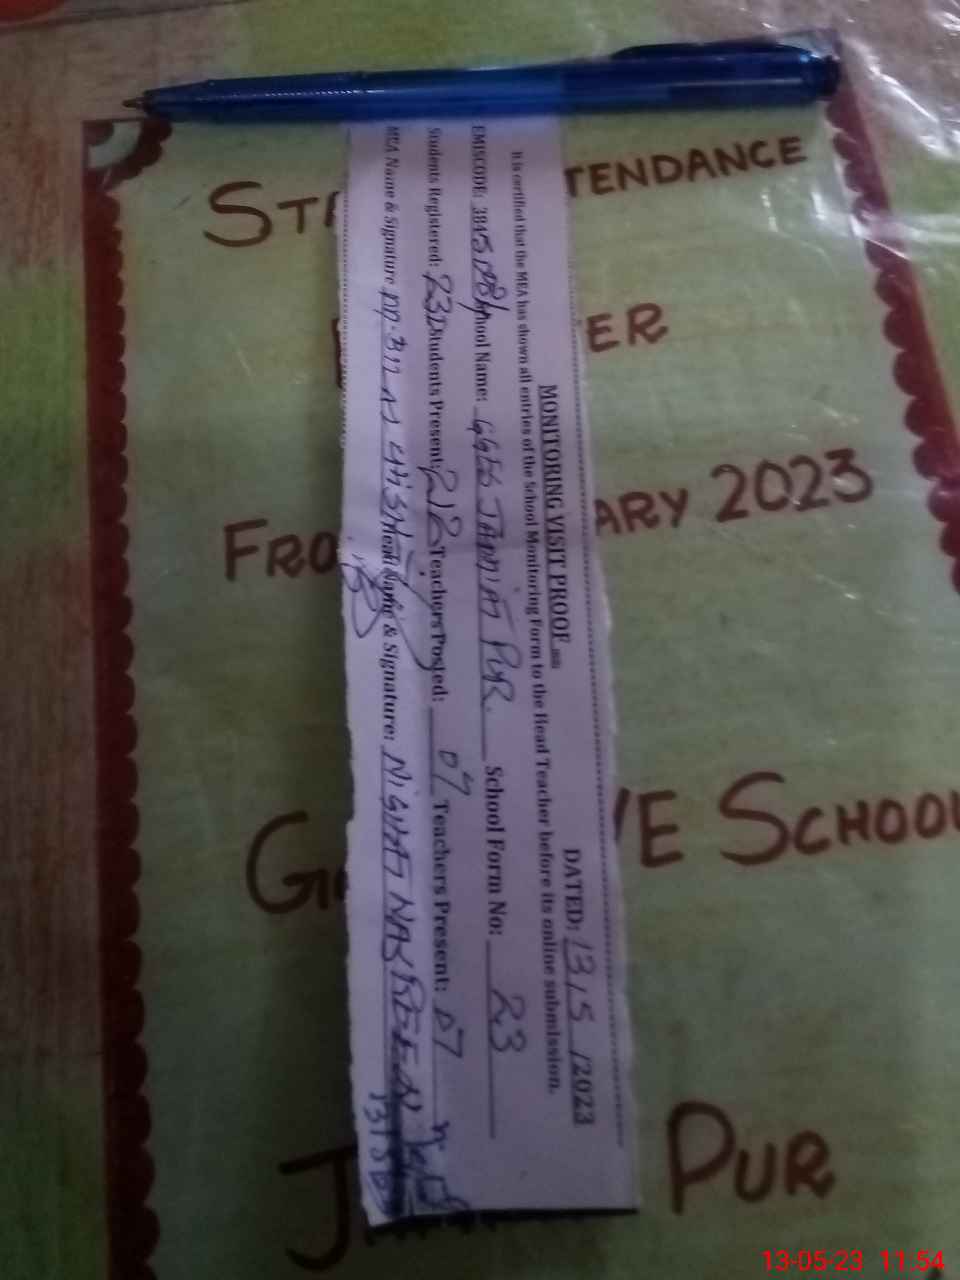 STA TENDANCE
ER
FRO ARY 2023
G VE SCHOOL
J PUR
DATED: 13/5/2023
MONITORING VISIT PROOF
It is certified that the MEA has shown all entries of the School Monitoring Form to the Head Teacher before its online submission.
EMISCODE: 384 School Name: GGES PUR. School Form No: 23
Students Registered: 232 Students Present: 212 Teachers Posted: 07 Teachers Present: 07
MEA Name & Signature Head Name & Signature: NIGHAT NASREEN
13/5
13-05-23 11:54